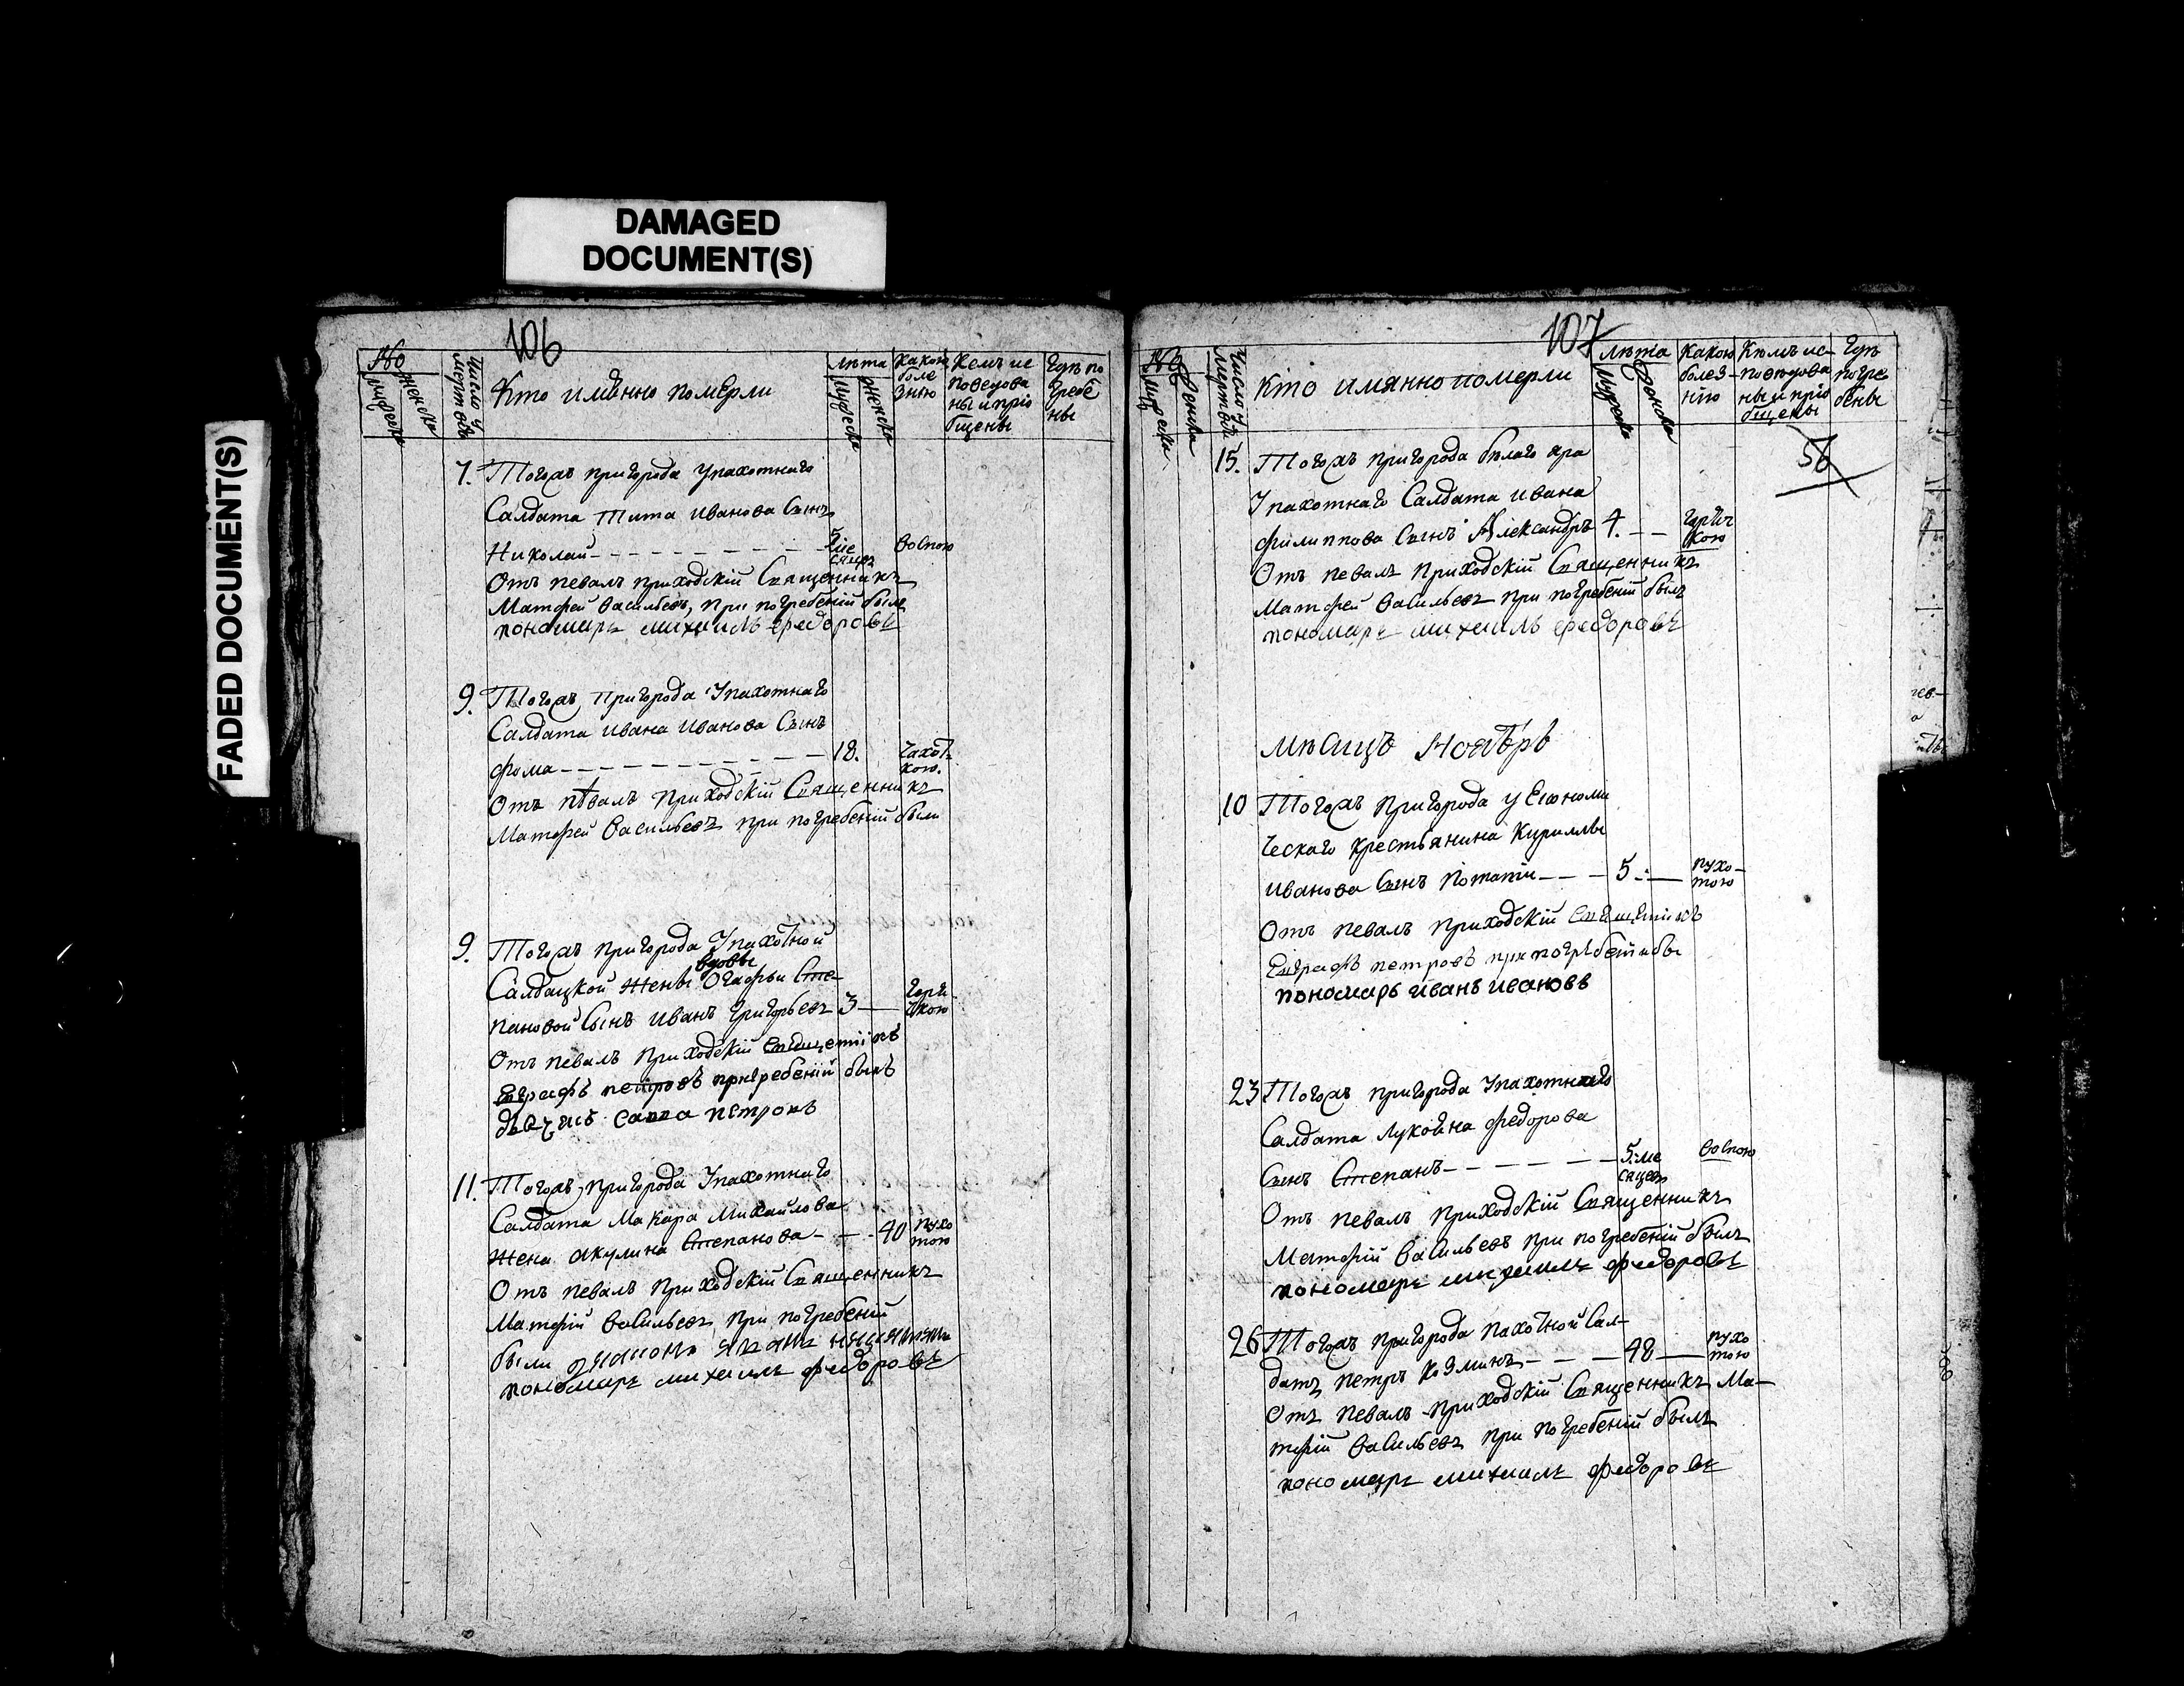 DAMAGED
DOCUMENT(S)
FADED DOCUMENT(S)
106
№
мужеска
женска
Число у
мертвыхъ
Кто имѣнно померли
лѣта
мужеска
женска
Какою
боле
знію
Кемъ ис
поведова
ны и прiо
бщены
Гдѣ по
гребе
ны
7. Тогожъ пригорода у пахотнаго
Салдата Тита Иванова Сынъ
Николай 5 ме
сяцовъ воспою
Отъ певалъ приходскiй Священникъ
Матфей Васильевъ, при погребенiй былъ
пономарь михаилъ федоровъ
9. Тогожъ пригорода У пахотнаго
Салдата Ивана Иванова Сынъ
фома 18. Чахот
кою.
Отъ пѣвалъ приходскiй Священникъ
Матфей Васильевъ при погребенiй были
9. Тогожъ пригорода У пахотной
вдовы
Салдацкой жены Огафьи Сте-
пановой Сынъ Иванъ Григорьевъ 3 горя
чкою
Отъ певалъ приходскiй Священникъ
Евграфъ петровъ при гребенiй былъ
дьячикъ савва петровъ
11. Тогожъ, пригорода У пахотнаго
Салдата Макара Михайлова
жена Акулина Степанова 40 пухо
тою
Отъ певалъ приходскiй Священникъ
Матфiй Васильевъ, при погребенiй
были
пономарь михаилъ федоровъ
107
№
мужеска
женска
Число у
мертвыхъ
Кто имянно померли
лѣта
мужеска
женска
Какою
болез-
нiю
Кѣмъ ис-
поведова
ны и прiо
бщены
Гдѣ
погре
бены
56
15. Тогожъ пригорода бѣлаго яра
У пахотнаго Салдата Ивана
филиппова Сынъ Александръ 4. горяч
кою
Отъ певалъ приходскiй Священникъ
Матфей Васильевъ при погребенiй былъ
пономарь михаилъ федоровъ
мѣсицъ Ноябрь
10 Тогожъ пригорода у Економи
ческаго крестьянина Кириллы
Иванова Сынъ Потапи 5 пухо-
тою
Отъ певалъ приходскiй Священникъ
Евграфъ петровъ при погребенiи бы
пономарь иванъ ивановъ
23 Тогожъ пригорода У пахотнаго
Салдата Лукойна федорова
Сынъ Степанъ 5. ме
сяцовъ воспою
Отъ певалъ приходскiй Священникъ
Матфiй Васильевъ при погребенiй былъ
пономарь михаилъ федоровъ
26 Тогожъ пригорода пахотной Сал-
датъ петръ Козминъ 48 пухо
тою
Отъ певалъ приходскiй Священникъ Ма-
тфiй Васильевъ при погребенiй былъ
пономарь михаилъ федоровъ